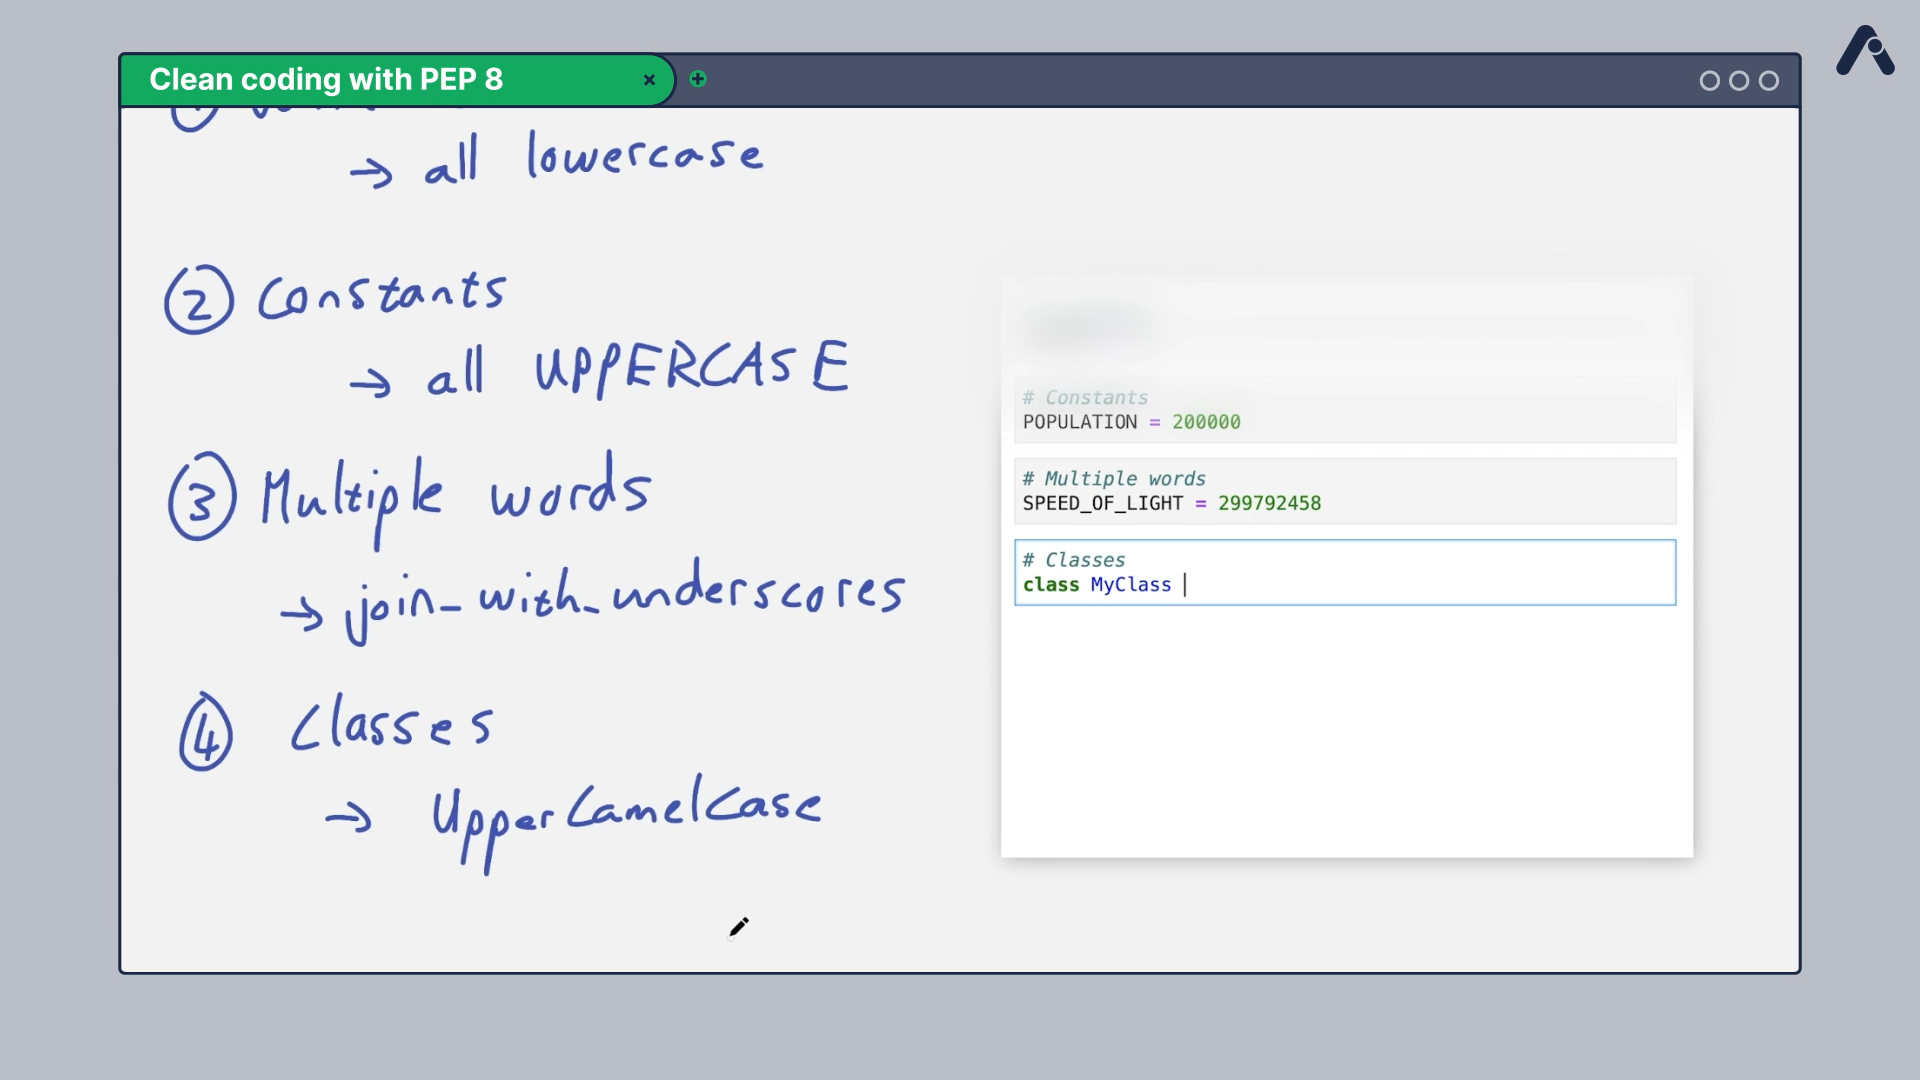 Clean coding with PEP 8
→ all lowercase
② Constants
→ all UPPERCASE
③ Multiple words
→ join_with_underscores
④ Classes
→ UpperCamelCase
# Constants
POPULATION = 200000
# Multiple words
SPEED_OF_LIGHT = 299792458
# Classes
class MyClass